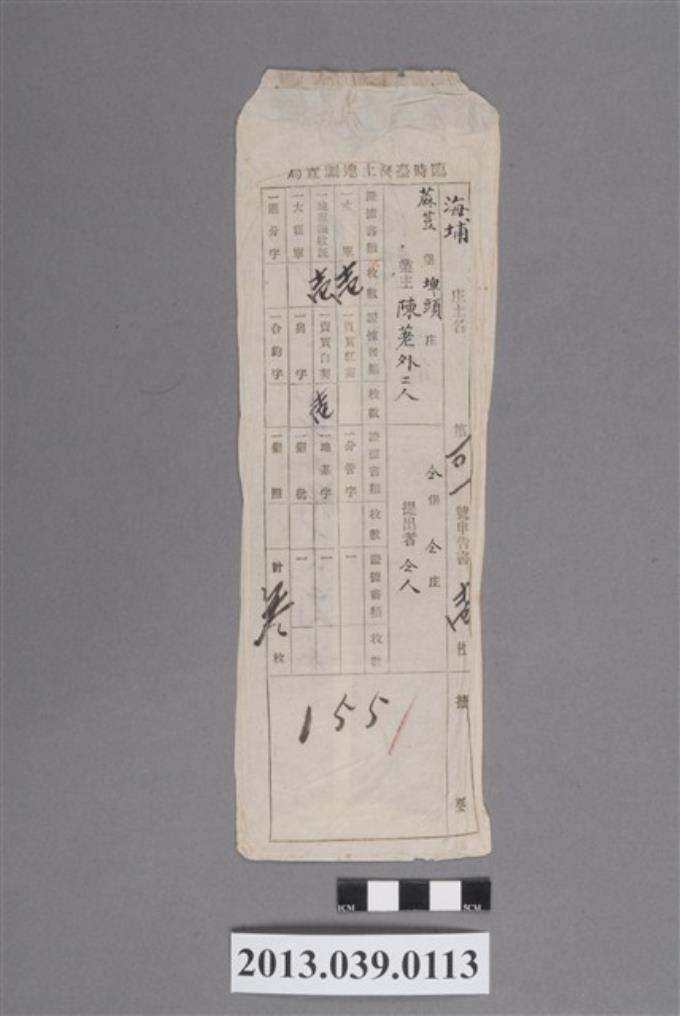 臨時臺灣土地調査局
海埔 庄土名 第百一號申告書 壱 枚 摘要
蔴荳 堡 埤頭 庄
業主 陳荖外二人
仝 堡 仝 庄
提出者 仝人
證據書類 枚數 證據書類 枚數 證據書類 枚數 證據書類 枚數
一丈單 壱 一買賣紅契 一分管字 一
一地租領收証 壱 一賣買白契 一地基字 一
一大租單 一典字 壱 一鬮批 一
一鬮分字 一合約字 一 計 叁 枚
155
1CM 5CM
2013.039.0113